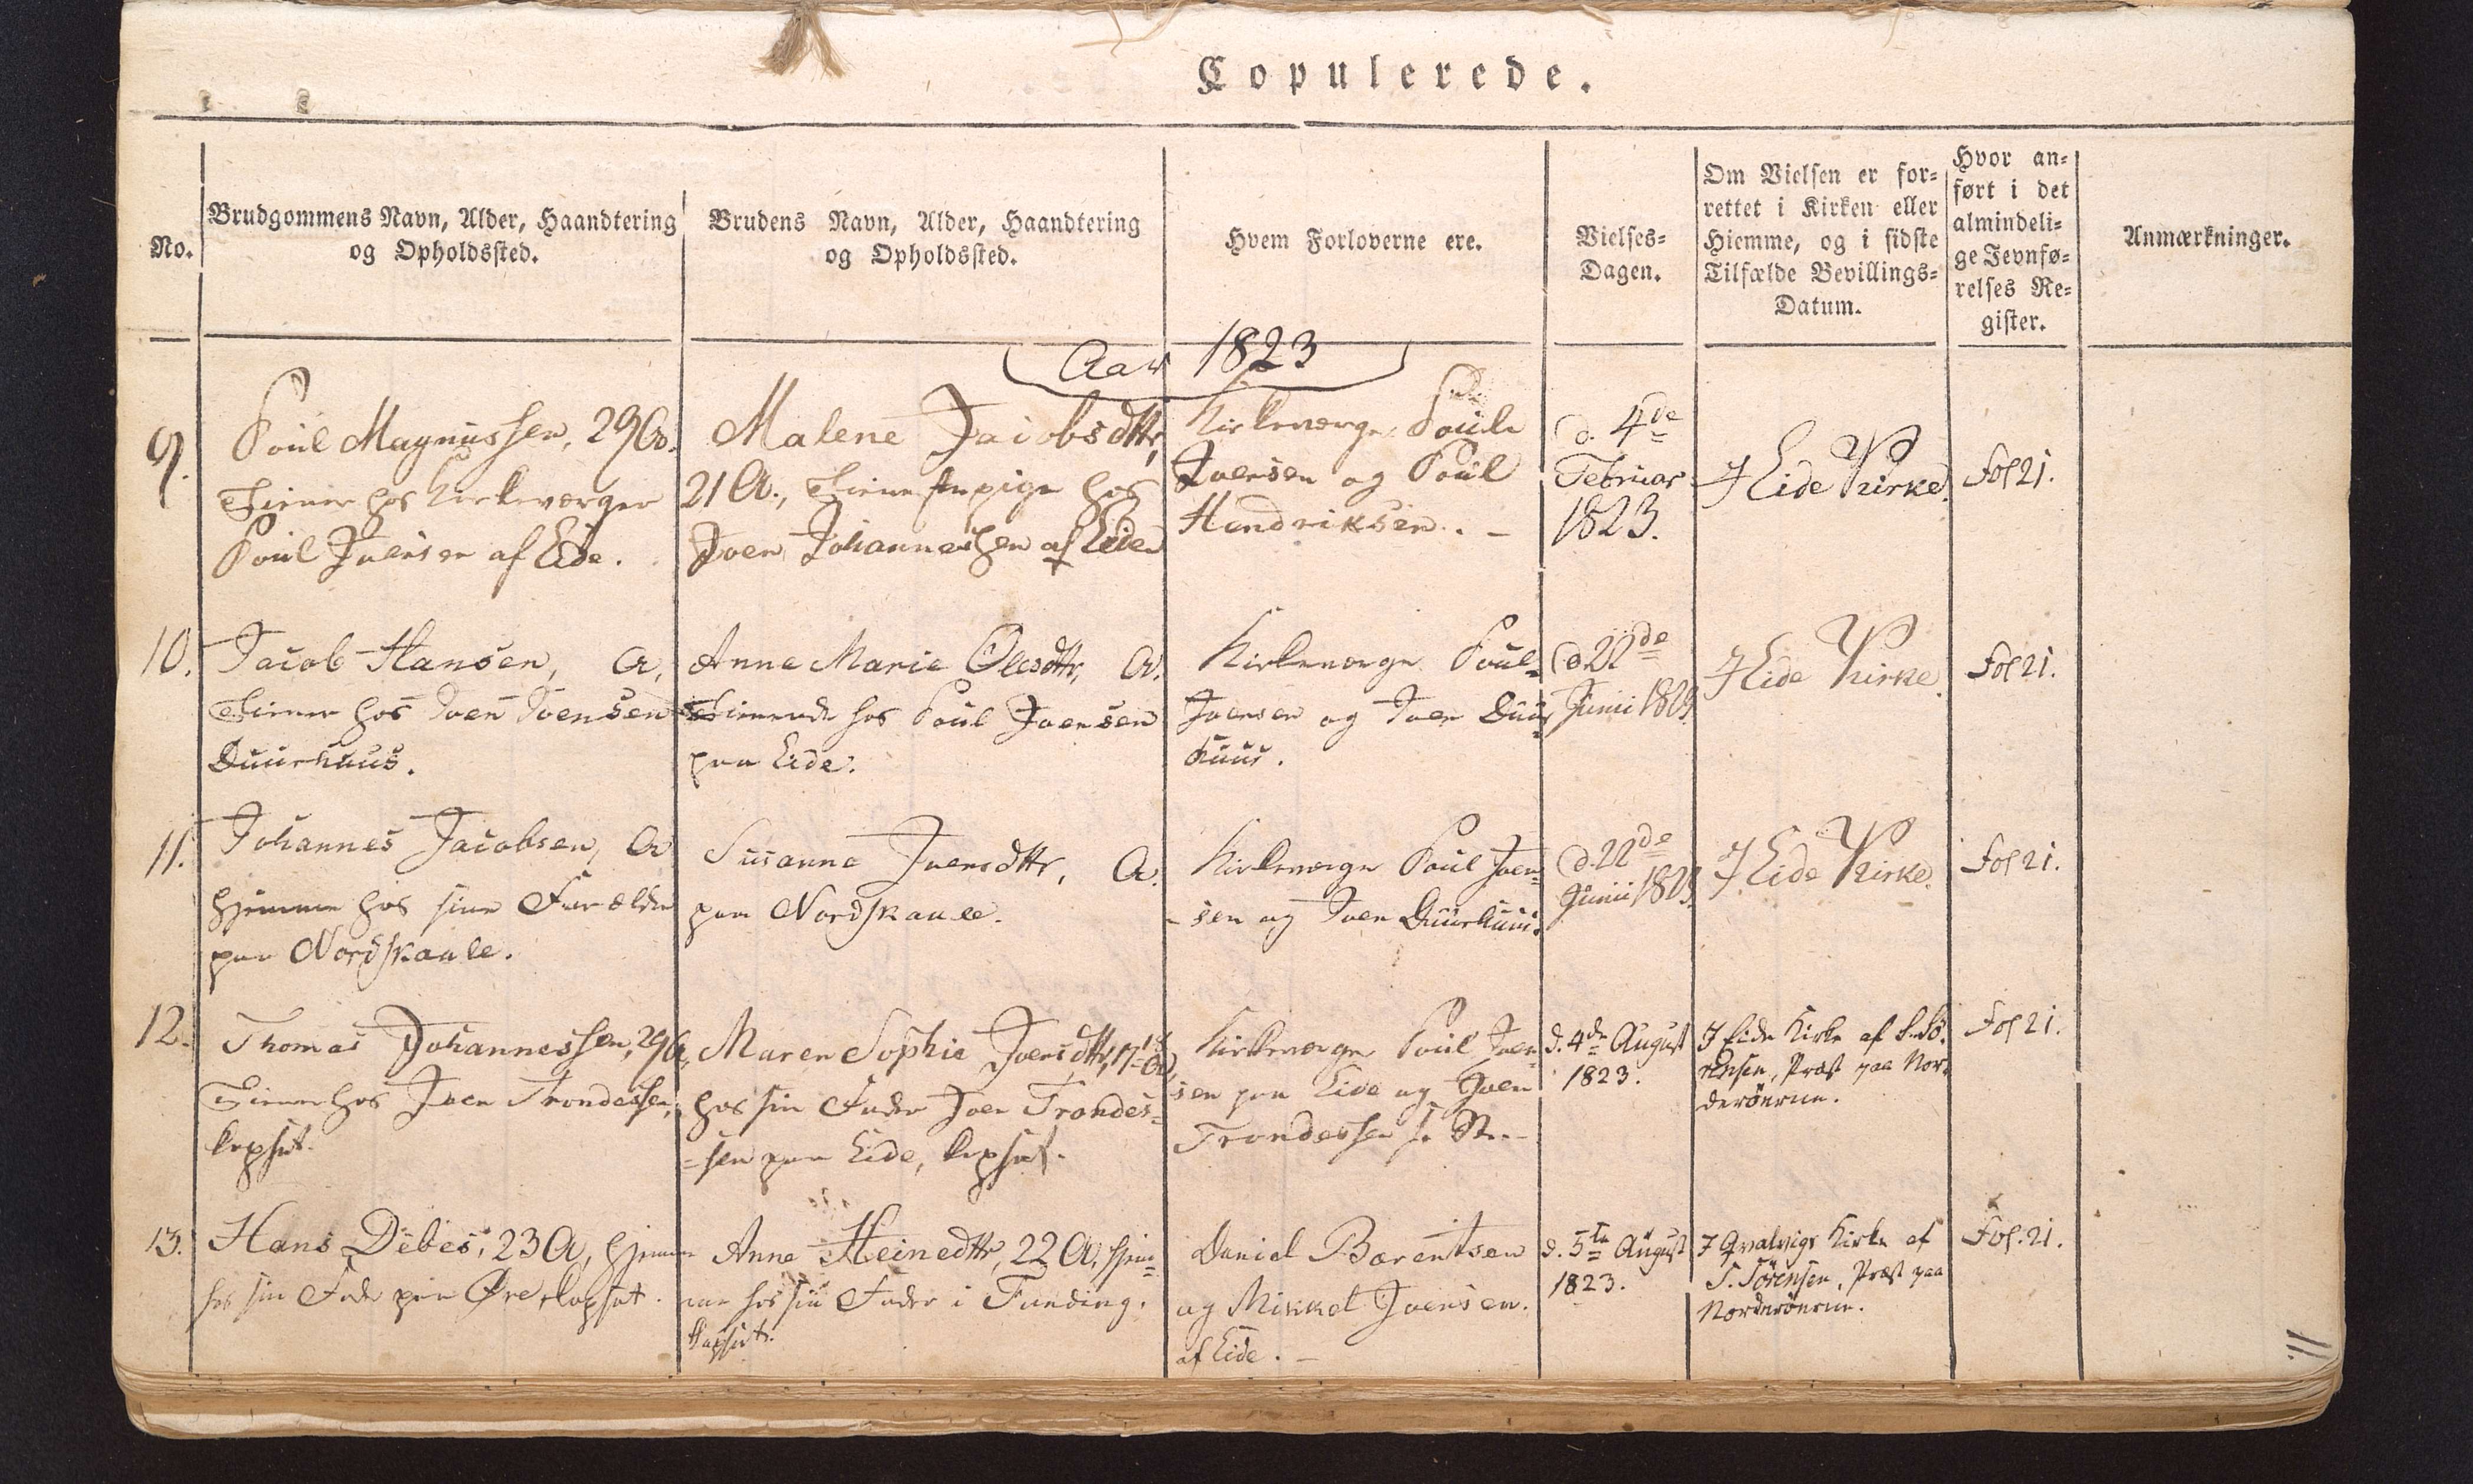 Copulerede.
No.
Brudgommens Navn, Alder, Haandtering
og Opholdssted.
Brudens Navn, Alder, Haandtering
og Opholdssted.
Hvem Forloverne ere.
Vielses-
Dagen.
Om Vielsen er for-
rettet i Kirken eller
Hiemme, og i sidste
Tilfælde Bevillings-
Datum.
Hvor an-
ført i det
almindeli-
ge Jevnfø-
relses Re-
gister.
Anmærkninger.
Aar 1823
9.
Poul Magnussen, 29 A.
Tiener hos Kirkeværger
Poul Joensen af Eide.
Malene Jacobsdttr,
21 A., Tienestepige hos
Joen Johannessen af Eide
Kirkeværge Poul
Joensen og Poul
Hendriksen. -
d. 4de
Februar
1823.
I Eide Kirke.
Fol 21.
10.
Jacob Hansen, A.
Tiener hos Joen Joensen
Duurhuus.
Anne Marie Olesdttr, A.
Tienende hos Poul Joensen
paa Eide.
Kirkeværge Poul
Joensen og Joen Duur-
huus.
d 22de
Junii 1823.
I Eide Kirke.
Fol 21.
11.
Johannes Jacobsen, A
hjemme hos sine Forældre
paa Nordskaale.
Susanne Joensdttr, A.
paa Nordskaale.
Kirkeværge Poul Joen-
-sen og Joen Duurhuus.
d. 22de
Junii 1823.
I Eide Kirke.
Fol 21.
12.
Thomas Johannessen, 29 A,
Tiener hos Joen Trondessen,
kopsat.
Maren Sophie Joensdttr, 17 A,
hos sin Fader Joen Trondes-
=sen paa Eide, kopsat.
Kirkeværge Poul Joen-
sen paa Eide og Joen
Trondessen s. St. -
d. 4de August
1823.
I Eide Kirke af S. Sö-
rensen, Præst paa Nor-
deröerne.
Fol 21.
13.
Hans Debes, 23 A, hjemme
hos sin Fader paa Øre, kopsat.
Anne Heinedttr, 22 A, hjem-
me hos sin Fader i Funding.
kopsat.
Daniel Barentsen
og Mikkel Joensen.
af Eide. -
d. 5te August
1823.
I Qvalvigs Kirke af
S. Sörensen, Præst paa
Norderöerne.
Fol. 21.
11